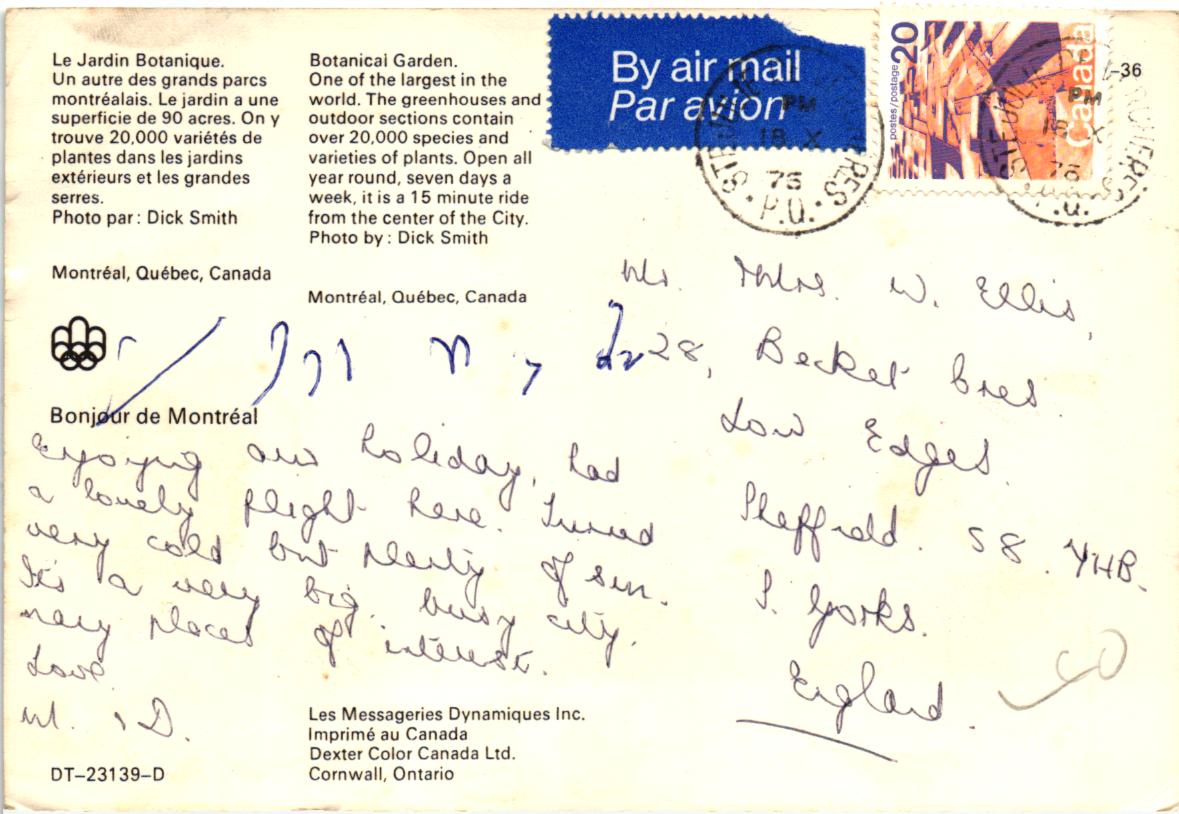 Le Jardin Botanique.
Un autre des grands parcs
montréalais. Le jardin a une
superficie de 90 acres. On y
trouve 20,000 variétés de
plantes dans les jardins
extérieurs et les grandes
serres.
Photo par : Dick Smith
Montréal, Québec, Canada
Botanical Garden.
One of the largest in the
world. The greenhouses and
outdoor sections contain
over 20,000 species and
varieties of plants. Open all
year round, seven days a
week, it is a 15 minute ride
from the center of the City.
Photo by : Dick Smith
Montréal, Québec, Canada
By air mail
Par avion
postes/postage
20
Canada
-36
PM
18 X
75
P.Q.
PM
18 X
75
P.Q.
Bonjour de Montréal
Enjoying our holiday, had
a lovely flight here. Turned
very cold but plenty of sun.
It's a very big, busy city,
many places of interest.
Love
M. , D.
Mr. Mrs. W. Ellis,
28, Becket Cres
Low Edges
Sheffield. S8. YHB.
S. Yorks.
England.
Les Messageries Dynamiques Inc.
Imprimé au Canada
Dexter Color Canada Ltd.
Cornwall, Ontario
DT–23139–D